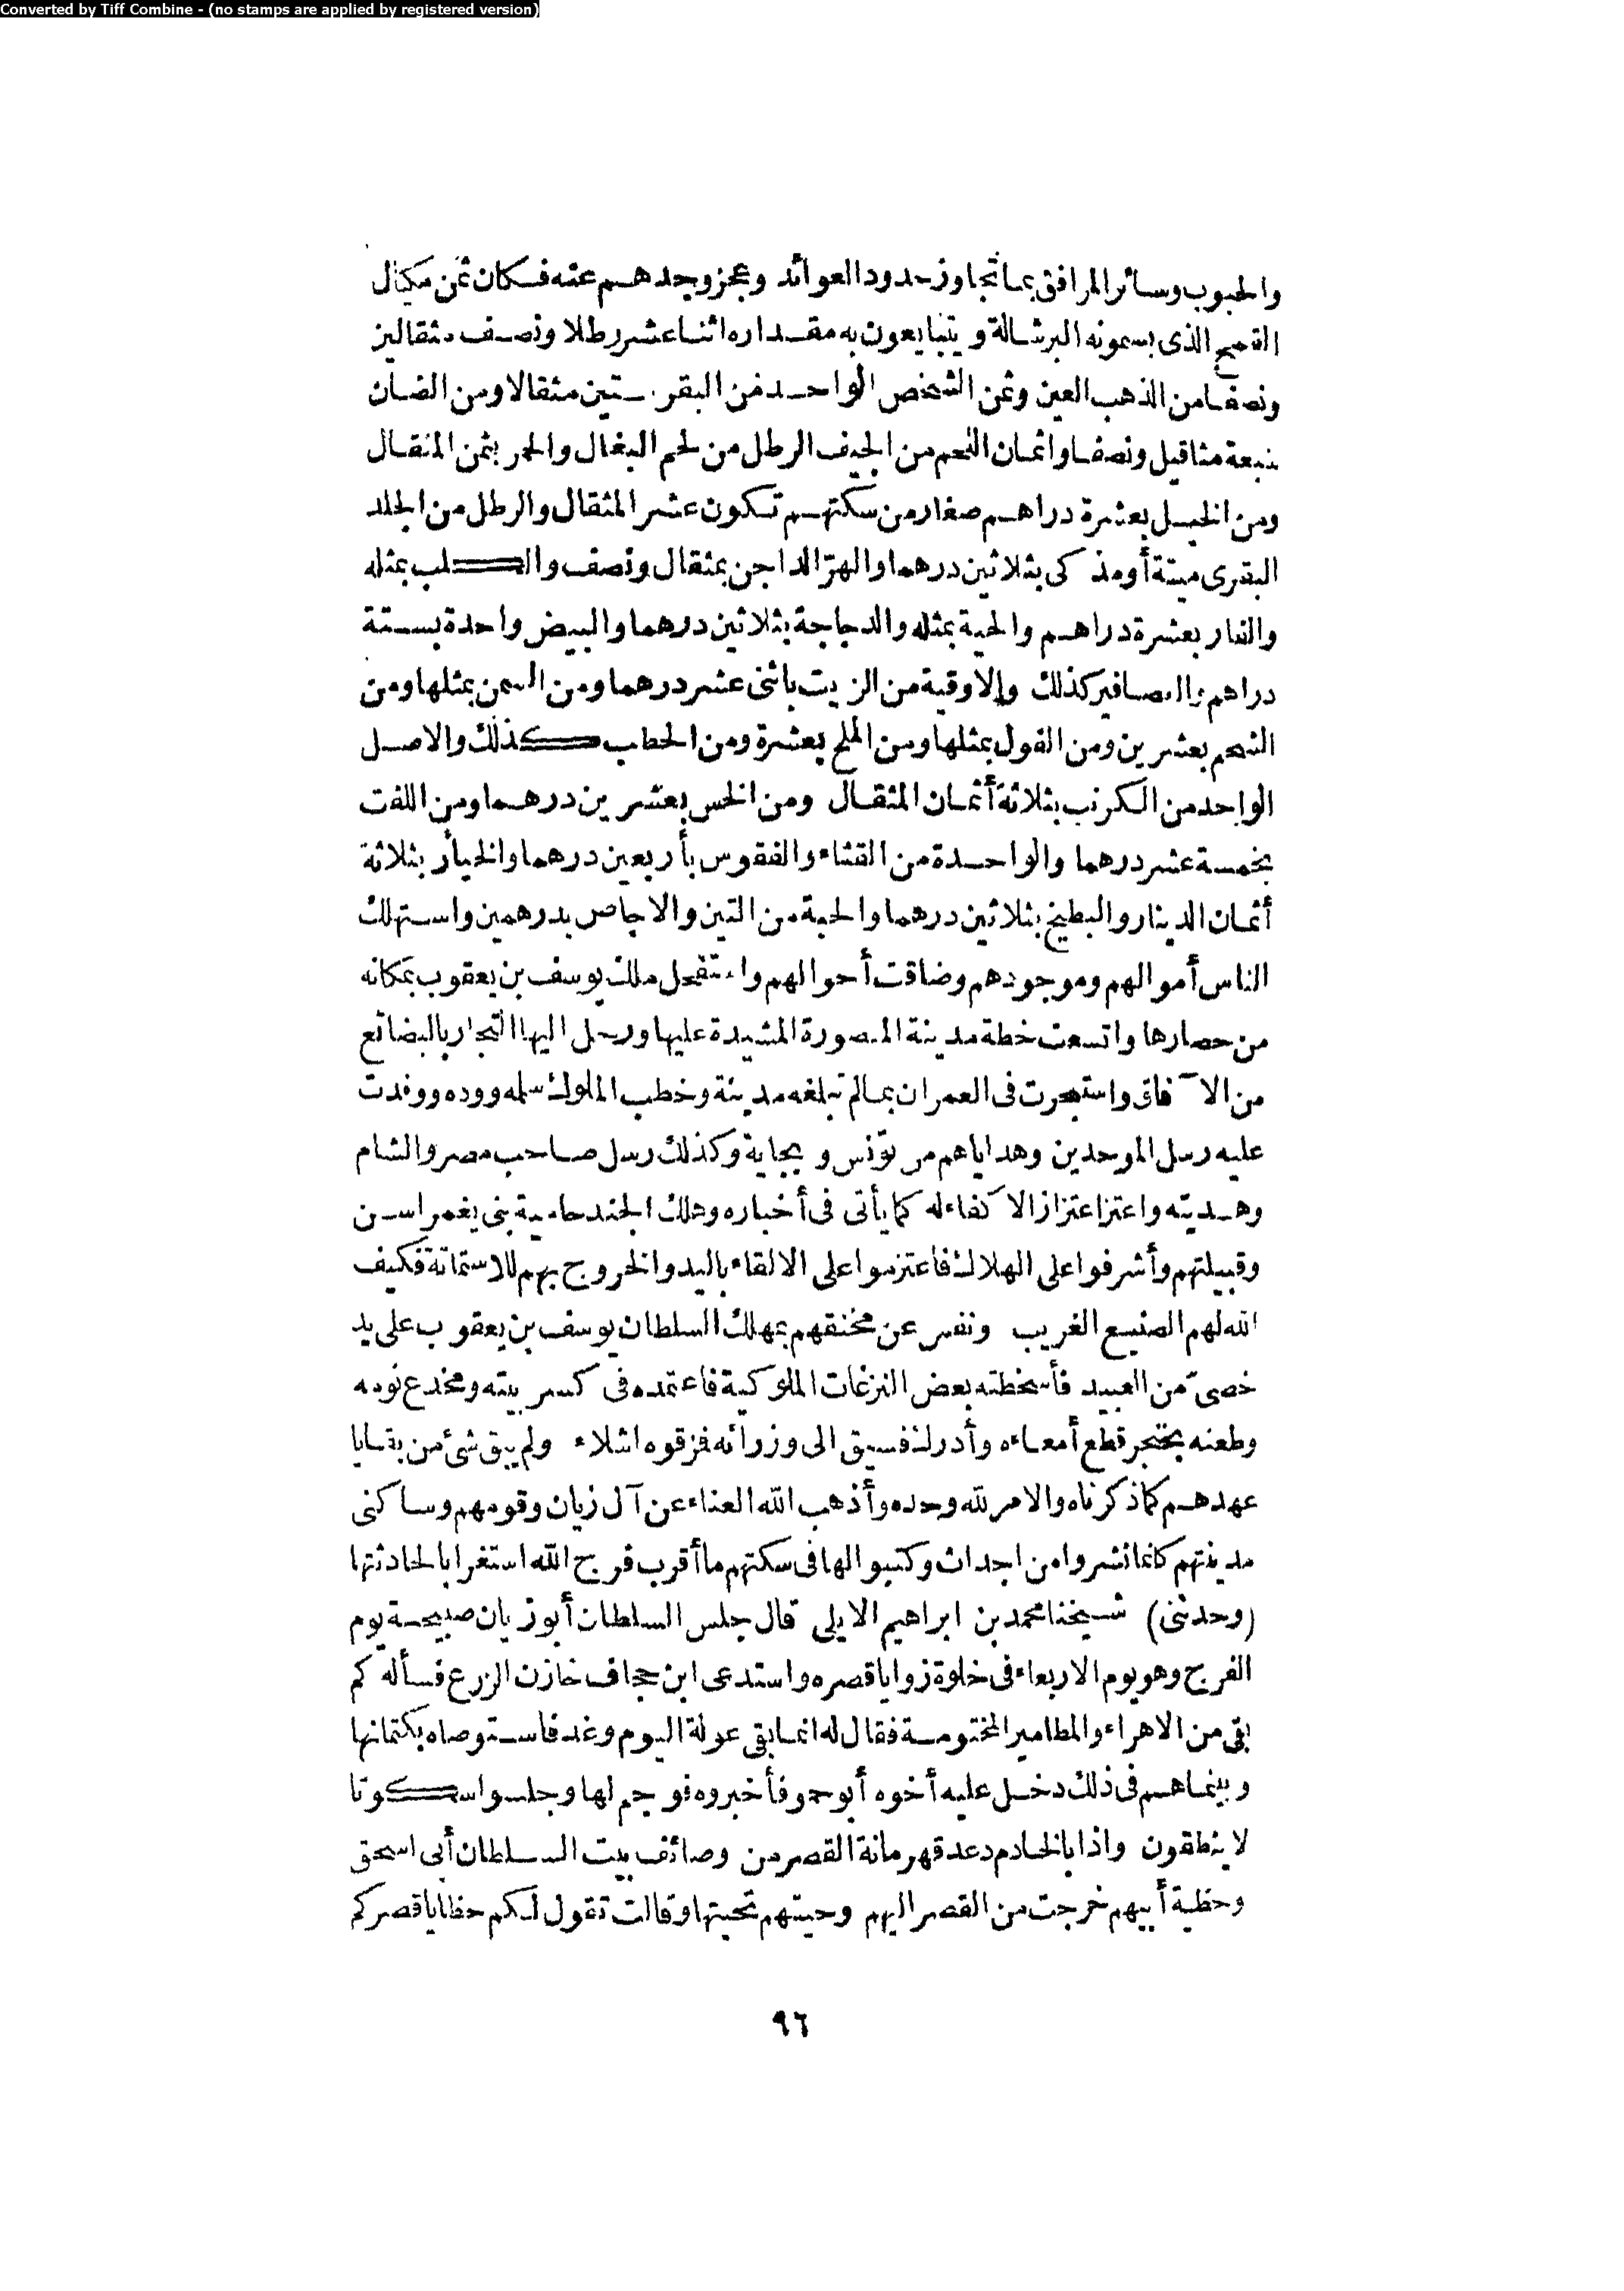 Converted by Tiff Combine - (no stamps are applied by registered version)
والحبوب وسائر المرافق بما تجاوز حدود العوائد وعجز وجدهم عنه فكان ثمن مكيال
القمح الذى يسمونه البرشالة و يتبايعون به مقداره اثنا عشر رطلا ونصف مثقالين
ونصفا من الذهب العين وثمن الشخص الواحد من البقر ستين مثقالا ومن الضان
سبعة مثاقيل ونصفا واثمان اللحم من الجيف الرطل من لحم البغال والحمر بثمن المثقال
ومن الخيل بعشرة دراهم صغار من سكتهم تكون عشر المثقال والرطل من الجلد
البقرى ميتة أو مذكى بثلاثين درهما والهرّ الداجن بمثقال ونصف والكلب بمثله
والفار بعشرة دراهم والحية بمثله والدجاجة بثلاثين درهما والبيض واحدة بستة
دراهم والعصافير كذلك والاوقية من الزيت باثنى عشر درهما ومن السمن بمثلها ومن
الشحم بعشرين ومن الفول بمثلها ومن الملح بعشرة ومن الحطب كذلك والاصل
الواحد من الكرنب بثلاثة أثمان المثقال ومن الخس بعشرين درهما ومن اللفت
بخمسة عشر درهما والواحدة من القثاء والفقوس بأربعين درهما والخيار بثلاثة
أثمان الدينار والبطيخ بثلاثين درهما والحبة من التين والاجاص بدرهمين واستهلك
الناس أموالهم وموجودهم وضاقت أحوالهم واستفحل ملك يوسف بن يعقوب بمكانه
من حصارها واتسعت خطة مدينة المنصورة المشيدة عليها ورحل اليها التجار بالبضائع
من الآفاق واستبحرت فى العمران بما لم تبلغه مدينة وخطب الملوك سلمه ووده ووفدت
عليه رسل الموحدين وهداياهم من تونس و بجاية وكذلك رسل صاحب مصر والشام
وهديته واعتز اعتزازا لا كفاء له كما يأتى فى أخباره وهلك الجند حامية بنى يغمراسن
وقبيلتهم وأشرفوا على الهلاك فاعتزموا على الالقاء باليد والخروج بهم للاستماتة فكيف
الله لهم الصنيع الغريب ونفس عن مخنقهم بمهلك السلطان يوسف بن يعقوب على يد
خصىّ من العبيد فأسخطته بعض النزغات الملوكية فاعتمده فى كسر بيته ومخدع نومه
وطعنه بخنجر قطع أمعاءه وأدرك فسيق الى وزرائه فمزقوه اشلاء ولم يبق شئ من بقايا
عهدهم كما ذكرناه والامر لله وحده وأذهب الله العناء عن آل زيان وقومهم وساكنى
مدينتهم كانما نشروا من اجداث وكتبوا لها فى سكتهم ما أقرب فرج الله استغرابا لحادثتها
(وحدثنى) شيخنا محمد بن ابراهيم الايلى قال جلس السلطان أبو زيان صبيحة يوم
الفرج وهو يوم الاربعاء فى خلوة زوايا قصره واستدعى ابن حجاف خازن الزرع فسأله كم
بقى من الاهراء والمطامير المختومة فقال له انما بقى عولة اليوم وغد فاستوصاه بكتمانها
وبينماهم فى ذلك دخل عليه أخوه أبو حمو فأخبروه فوجم لها وجلسوا سكوتا
لا ينطقون واذا بالخادم دعد قهرمانة القصر من وصائف بيت السلطان أبى اسحق
وحظية أبيهم خرجت من القصر اليهم وحيتهم تحيتها وقالت تقول لكم حظايا قصركم
٩٦